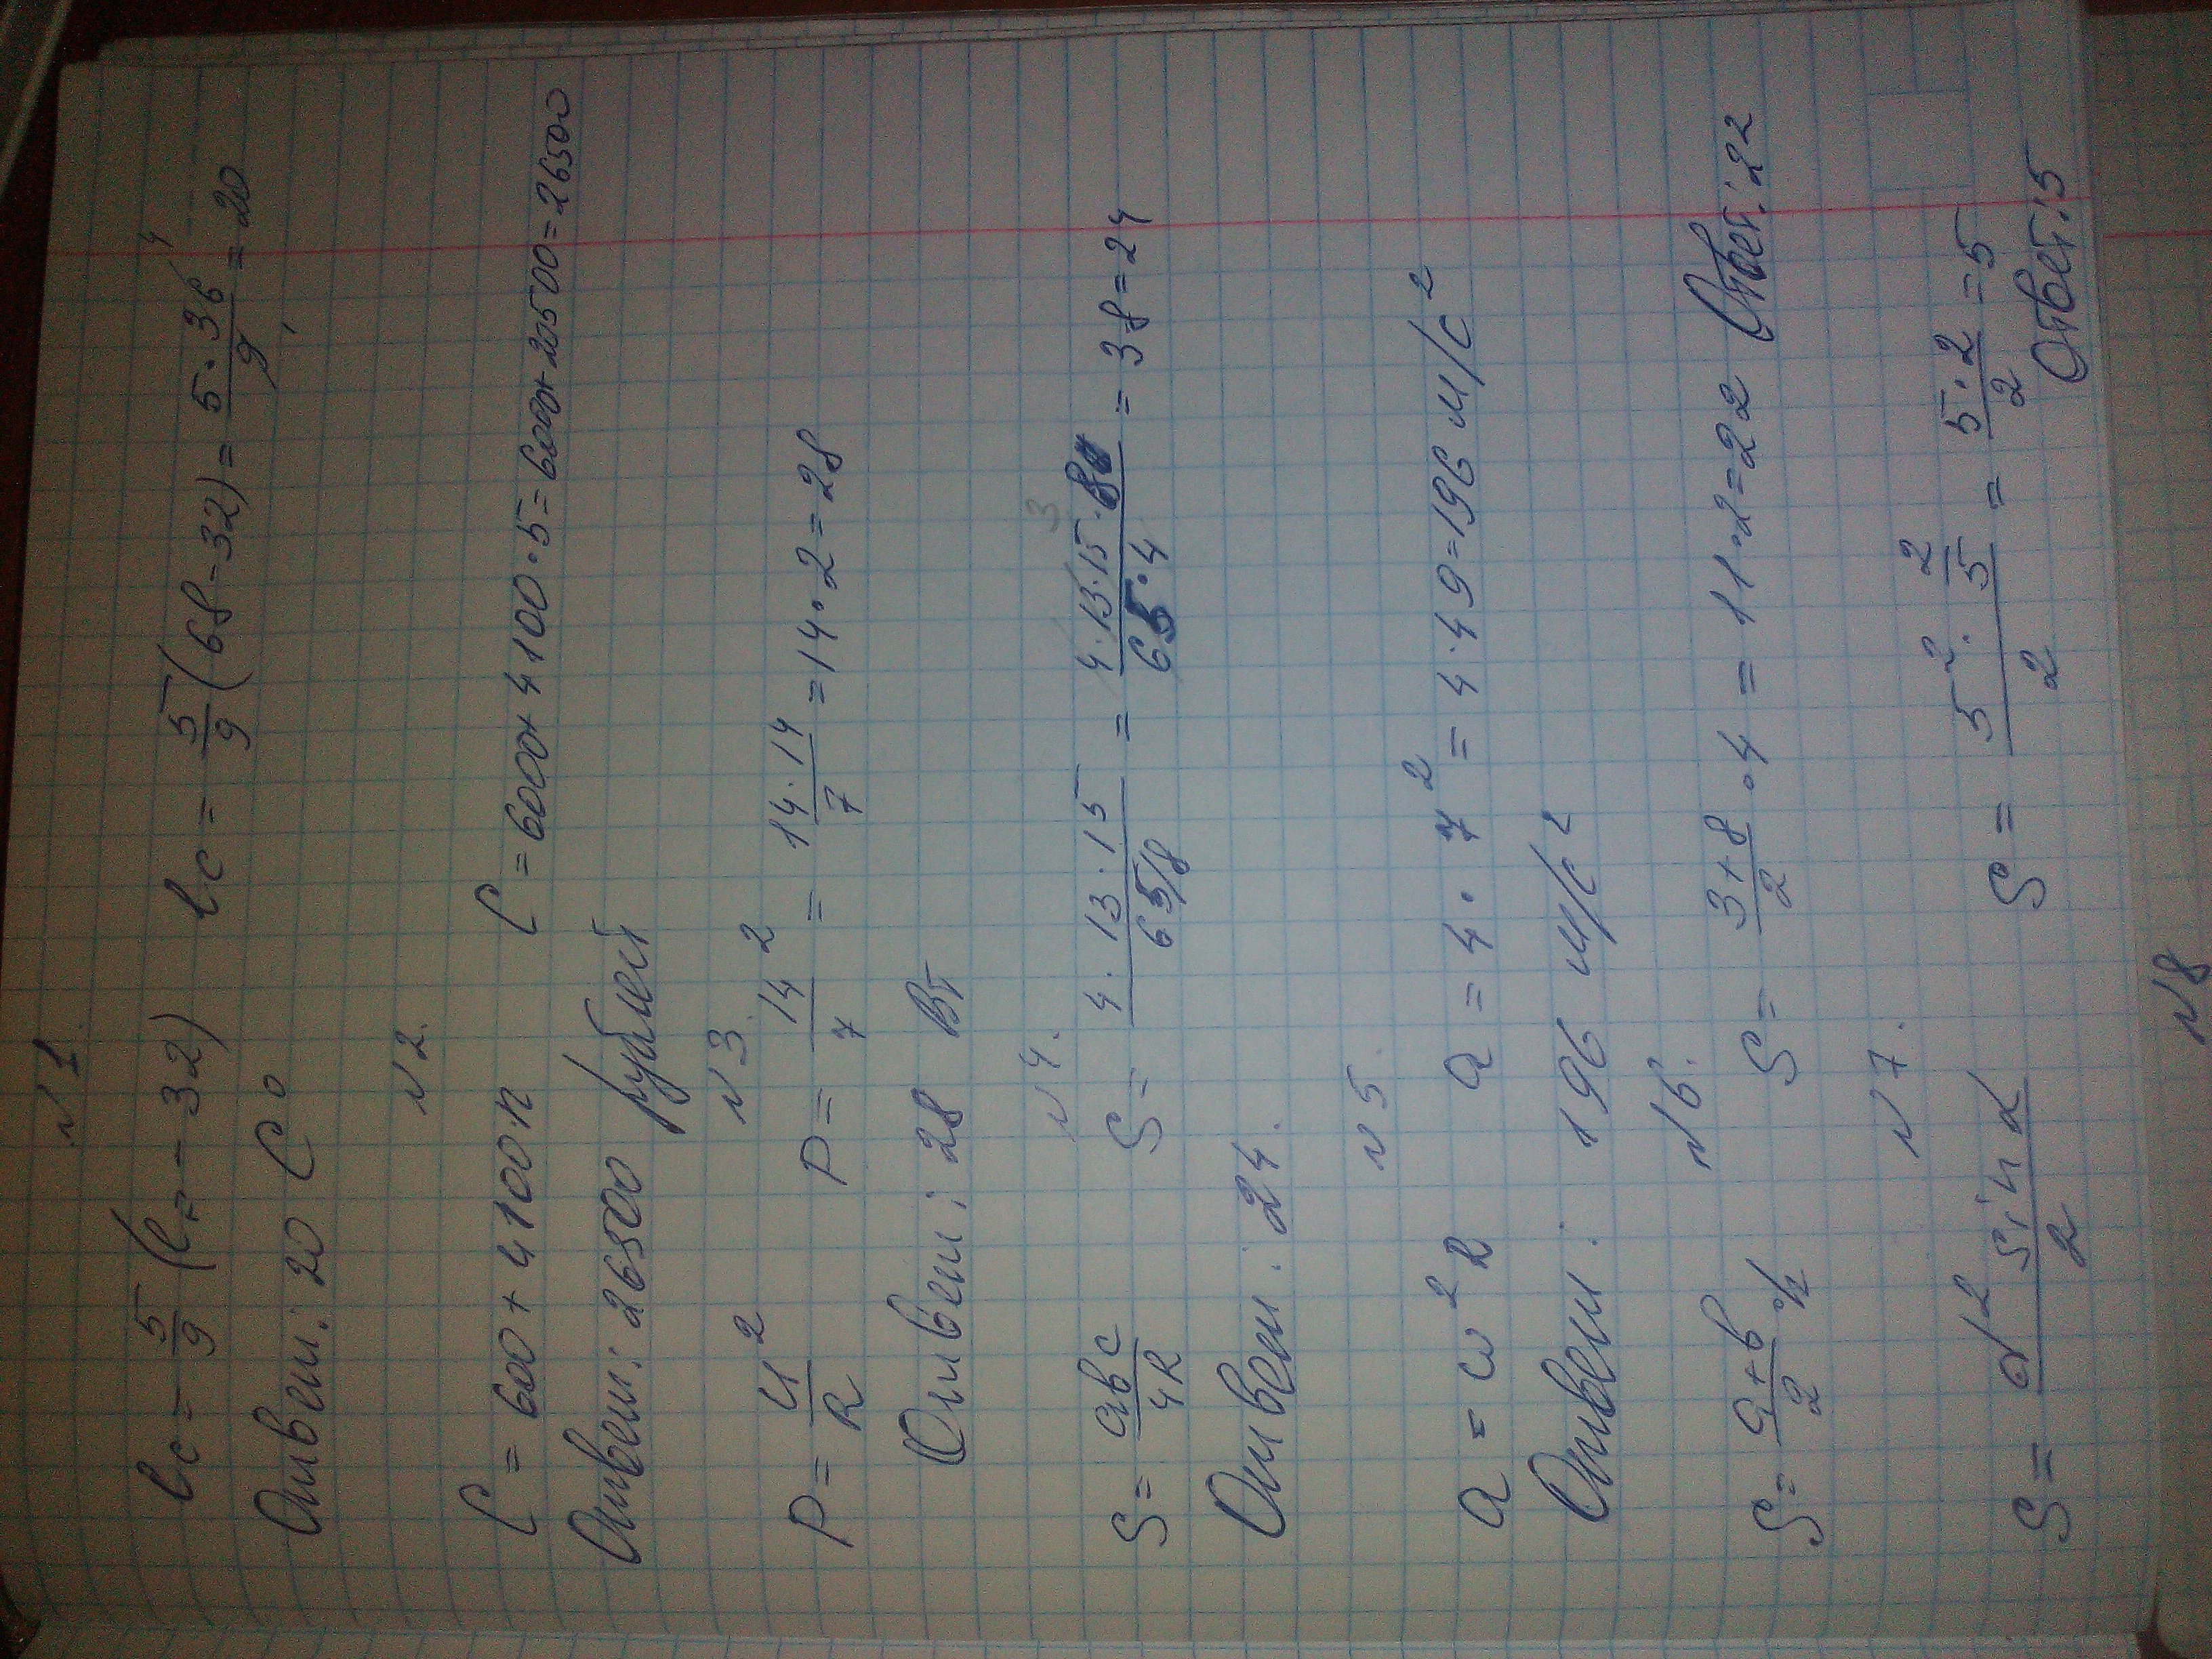 №1.
tс = 5/9 (tF - 32) tс = 5/9 (68-32) = 5·36/9 = 20
Ответ: 20 С°
№2.
C = 600 + 4100·n C = 6000+4100·5 = 6000+20500=26500
Ответ: 26500 рублей
№3.
P = U²/R P = 14²/7 = 14·14/7 = 14·2=28
Ответ: 28 Вт
№4.
S = abc/4R S = 4·13·15/65/8 = 4·13·15·8/65·4 = 38=24
Ответ: 24.
№5.
a = ω²R a = 4·7² = 4·49=196 м/с²
Ответ: 196 м/с²
№6.
S = a+b/2 ·h S = 3+8/2 ·4 = 11·2=22 Ответ: 22
№7.
S = d² sin α/2 S = 5²·2/5/2 = 5·2/2 = 5
Ответ: 5
№8